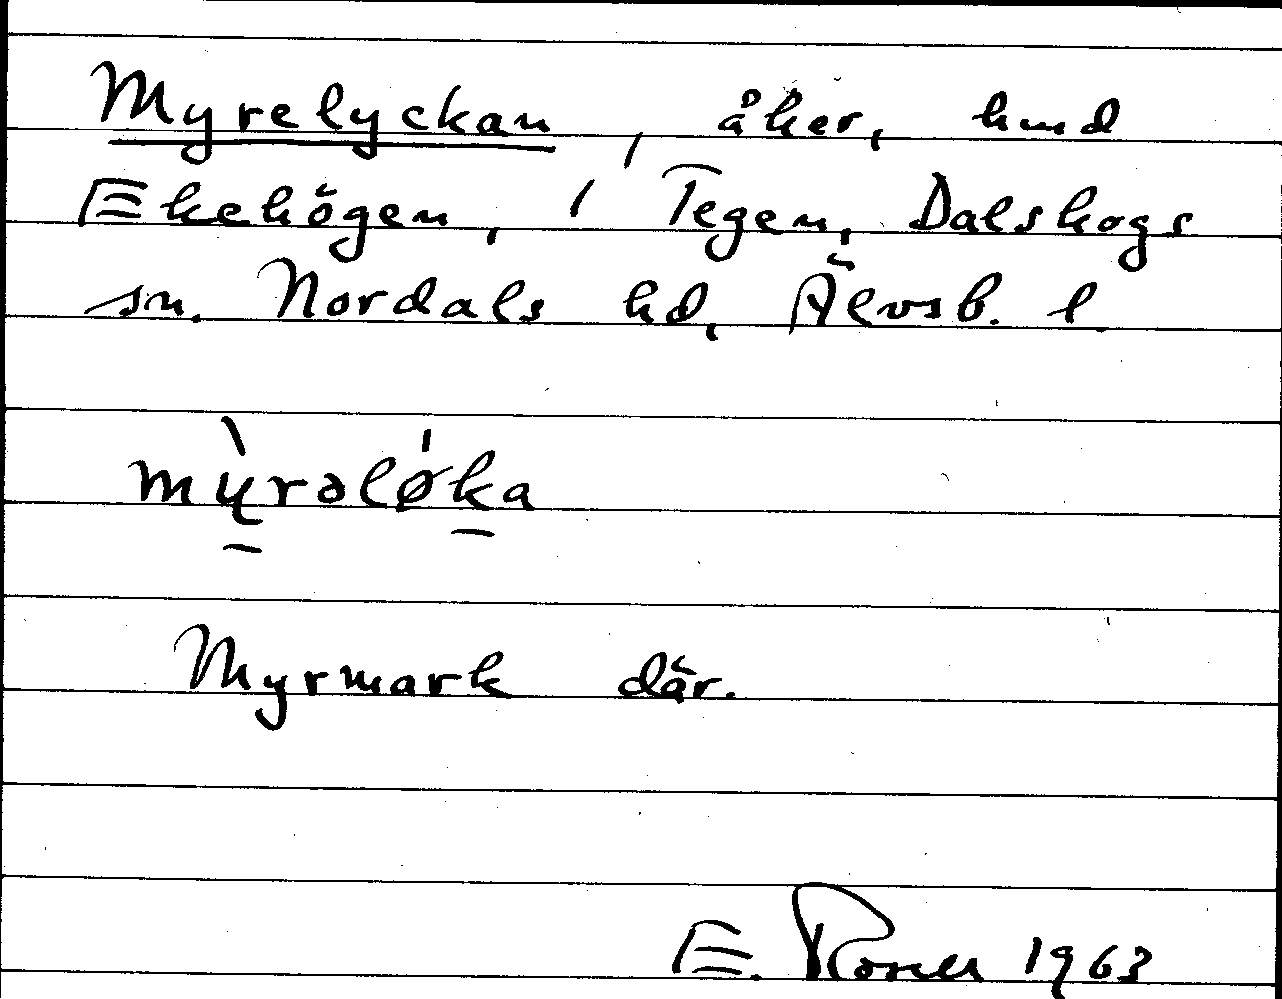 Myrelyckan, åker, hmd
Ekehögen, 1 Tegen, Dalskogs
sn. Nordals hd, Älvsb. l.
mỳrəløka
Myrmark där.
E. 1963